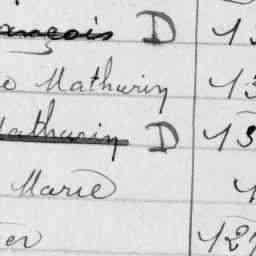 ançois D 13
o Mathurin 13
Mathurin D 13
Marie 1
er 121